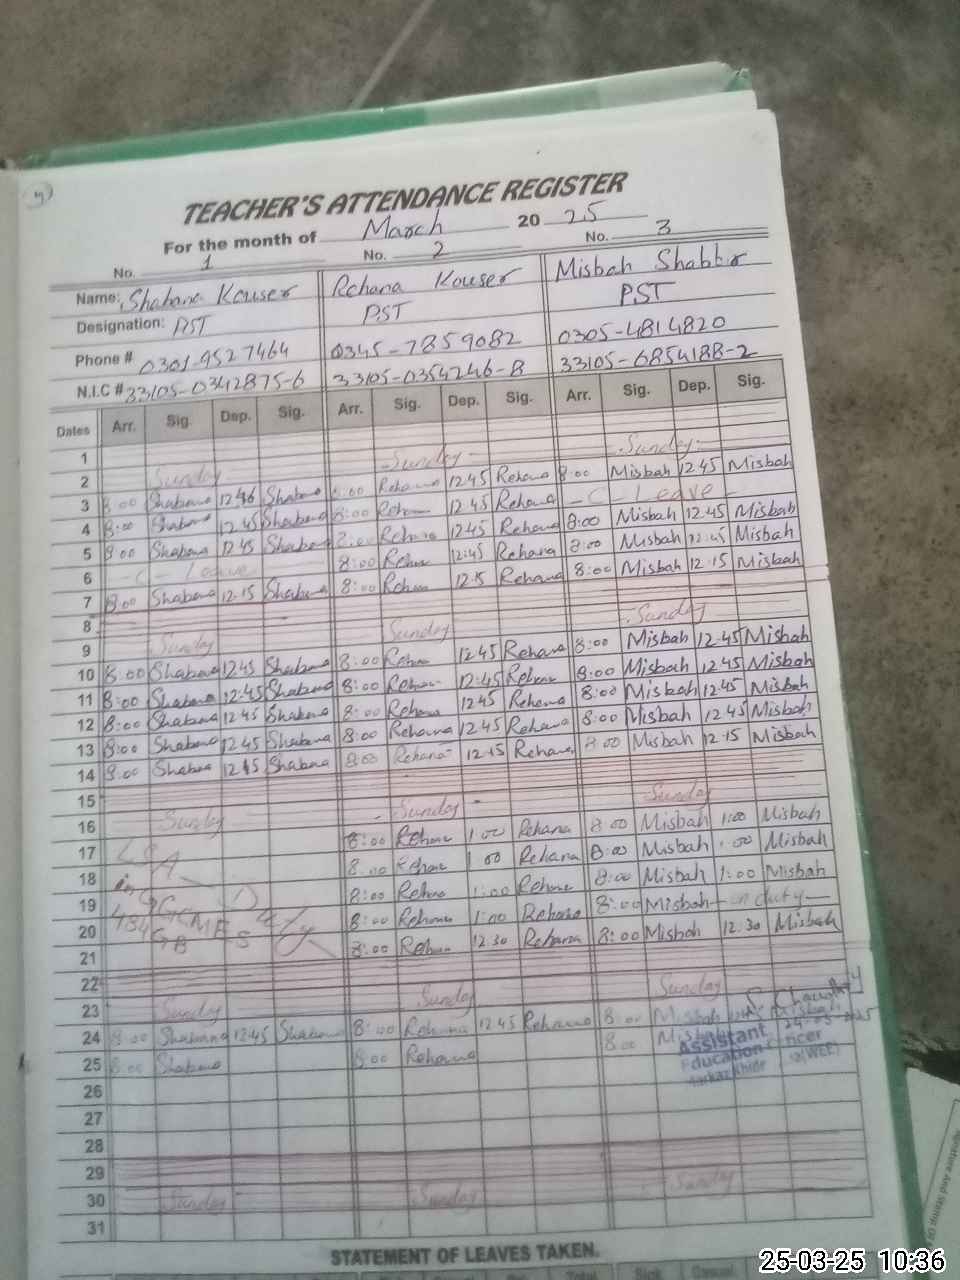 TEACHER'S ATTENDANCE REGISTER
For the month of March 20 25
No. 1 No. 2 No. 3
Name: Shabana Kouser Rehana Kouser Misbah Shabbir
Designation: PST PST PST
Phone # 0301-9527464 0345-7859082 0305-4814820
N.I.C # 33105-0342875-6 33105-0354246-8 33105-6854188-2
Dates Arr. Sig. Dep. Sig. Arr. Sig. Dep. Sig. Arr. Sig. Dep. Sig.
1
2 Sunday Sunday Sunday
3 8:00 Shabana 12:46 Shabana 8:00 Rehana 12:45 Rehana 8:00 Misbah 12:45 Misbah
4 8:00 Shabana 12:45 Shabana 8:00 Rehana 12:45 Rehana - C - Leave -
5 8:00 Shabana 12:45 Shabana 8:00 Rehana 12:45 Rehana 8:00 Misbah 12:45 Misbah
6 - C - Leave 8:00 Rehana 12:45 Rehana 8:00 Misbah 12:45 Misbah
7 8:00 Shabana 12:15 Shabana 8:00 Rehana 12:15 Rehana 8:00 Misbah 12:15 Misbah
8
9 Sunday Sunday Sunday
10 8:00 Shabana 12:45 Shabana 8:00 Rehana 12:45 Rehana 8:00 Misbah 12:45 Misbah
11 8:00 Shabana 12:45 Shabana 8:00 Rehana 12:45 Rehana 8:00 Misbah 12:45 Misbah
12 8:00 Shabana 12:45 Shabana 8:00 Rehana 12:45 Rehana 8:00 Misbah 12:45 Misbah
13 8:00 Shabana 12:45 Shabana 8:00 Rehana 12:45 Rehana 8:00 Misbah 12:45 Misbah
14 8:00 Shabana 12:45 Shabana 8:00 Rehana 12:15 Rehana 8:00 Misbah 12:15 Misbah
15
16 Sunday Sunday Sunday
17 8:00 Rehana 1:00 Rehana 8:00 Misbah 1:00 Misbah
18 8:00 Rehana 1:00 Rehana 8:00 Misbah 1:00 Misbah
19 in 8:00 Rehana 1:00 Rehana 8:00 Misbah 1:00 Misbah
20 GGMES 8:00 Rehana 1:00 Rehana 8:00 Misbah - on duty -
21 GB 8:00 Rehana 12:30 Rehana 8:00 Misbah 12:30 Misbah
22
23 Sunday Sunday Sunday
24 8:00 Shabana 12:45 Shabana 8:00 Rehana 12:45 Rehana 8:00 Misbah Misbah
25 8:00 Shabana 8:00 Rehana 8:00 Misbah
Assistant
Education Officer
Markaz (WEE)
26
27
28
29
30 Sunday Sunday Sunday
31
STATEMENT OF LEAVES TAKEN.
25-03-25 10:36